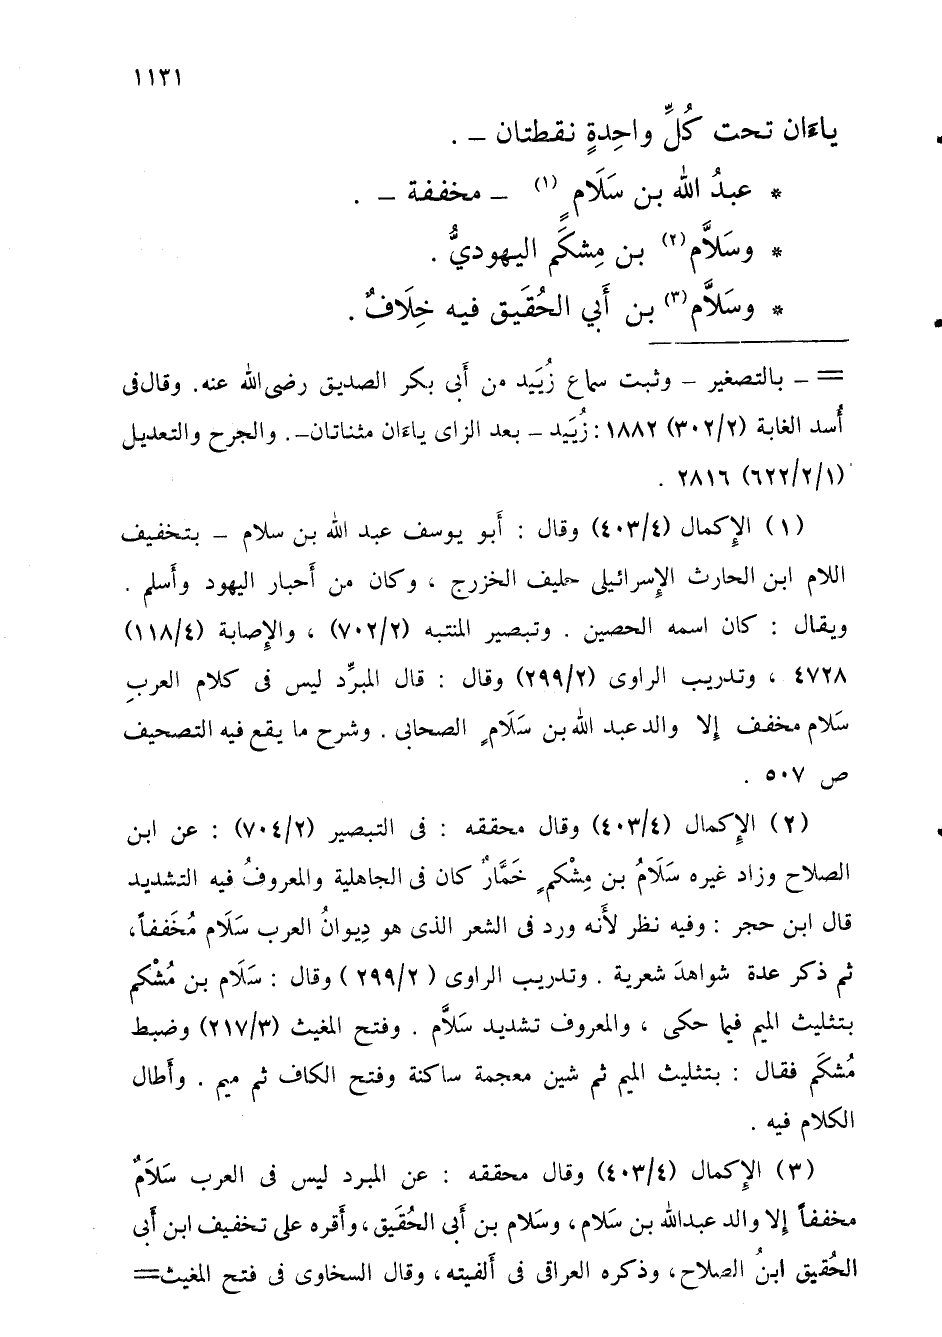 ١١٣١
ياءَان تحت كُلِّ واحِدةٍ نقطتان ـ .
* عبدُ الله بن سَلَامٍ (١) ـ مخففة ـ .
* وسَلَّام(٢) بن مِشكَم اليهوديُّ .
* وسَلَّام(٣) بن أَبي الحُقَيق فيه خِلَافٌ .
= ـ بالتصغير ـ وثبت سماع زُيَيد من أَبى بكر الصديق رضى الله عنه. وقال فى
أُسد الغابة (٣٠٢/٢) ١٨٨٢ : زُيَيد ـ بعد الزاى ياءَان مثناتان ـ. والجرح والتعديل
(٦٢٢/٢/١) ٢٨١٦ .
(١) الإِكمال (٤٠٣/٤) وقال : أَبو يوسف عبد الله بن سلام ـ بتخفيف
اللام ابن الحارث الإِسرائيلى حليف الخزرج ، وكان من أَحبار اليهود وأَسلم .
ويقال : كان اسمه الحصين . وتبصير المنتبه (٧٠٢/٢) ، والإِصابة (١١٨/٤)
٤٧٢٨ ، وتدريب الراوى (٢٩٩/٢) وقال : قال المبرِّد ليس فى كلام العربِ
سَلام مخفف إِلا والد عبد الله بن سَلَامٍ الصحابى . وشرح ما يقع فيه التصحيف
ص ٥٠٧ .
(٢) الإِكمال (٤٠٣/٤) وقال محققه : فى التبصير (٧٠٤/٢) : عن ابن
الصلاح وزاد غيره سَلَامُ بن مِشْكمٍ خَمَّارٌ كان فى الجاهلية والمعروفُ فيه التشديد
قال ابن حجر : وفيه نظر لأَنه ورد فى الشعر الذى هو دِيوانُ العرب سَلَام مُخَففاً،
ثم ذكر عدة شواهدَ شعرية . وتدريب الراوى (٢٩٩/٢) وقال : سَلَام بن مُشْكم
بتثليث الميم فيما حكى ، والمعروف تشديد سَلاَّم . وفتح المغيث (٢١٧/٣) وضبط
مُشكَم فقال : بتثليث الميم ثم شين معجمة ساكنة وفتح الكاف ثم ميم . وأَطال
الكلام فيه .
(٣) الإِكمال (٤٠٣/٤) وقال محققه : عن المبرد ليس فى العرب سَلَامٌ
مخففاً إِلا والد عبدالله بن سَلام، وسَلام بن أَبى الحُقَيق، وأَقره على تخفيف ابن أَبى
الحُقيق ابنُ الصلاح، وذكره العراقى فى أَلفيته، وقال السخاوى فى فتح المغيث=